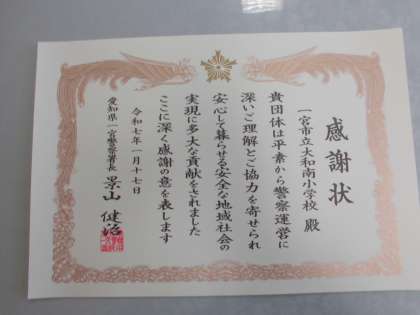 感謝状
一宮市立大和南小学校 殿
貴団体は平素から警察運営に
深いご理解とご協力を寄せられ
安心して暮らせる安全な地域社会の
実現に多大な貢献をされました
ここに深く感謝の意を表します
令和七年一月十七日
愛知県一宮警察署長 景山 健治